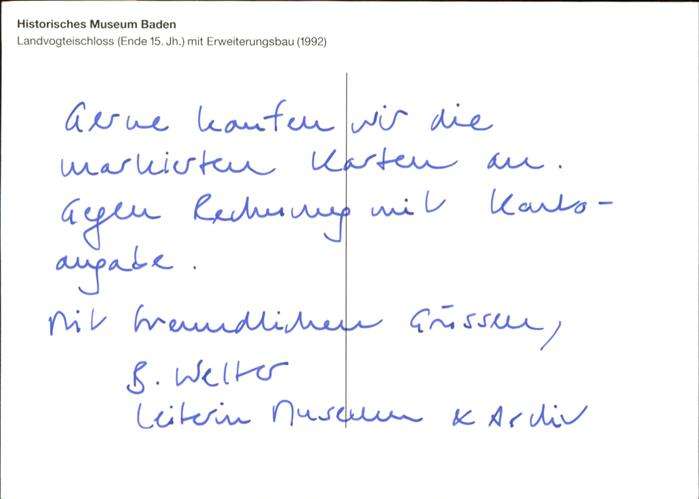 Historisches Museum Baden
Landvogteischloss (Ende 15. Jh.) mit Erweiterungsbau (1992)
Gerne kaufen wir die
markierten Karten an.
Gegen Rechnung mit Konto-
angabe.
Mit freundlichen Grüssen,
B. Welter
Leiterin Museum & Archiv